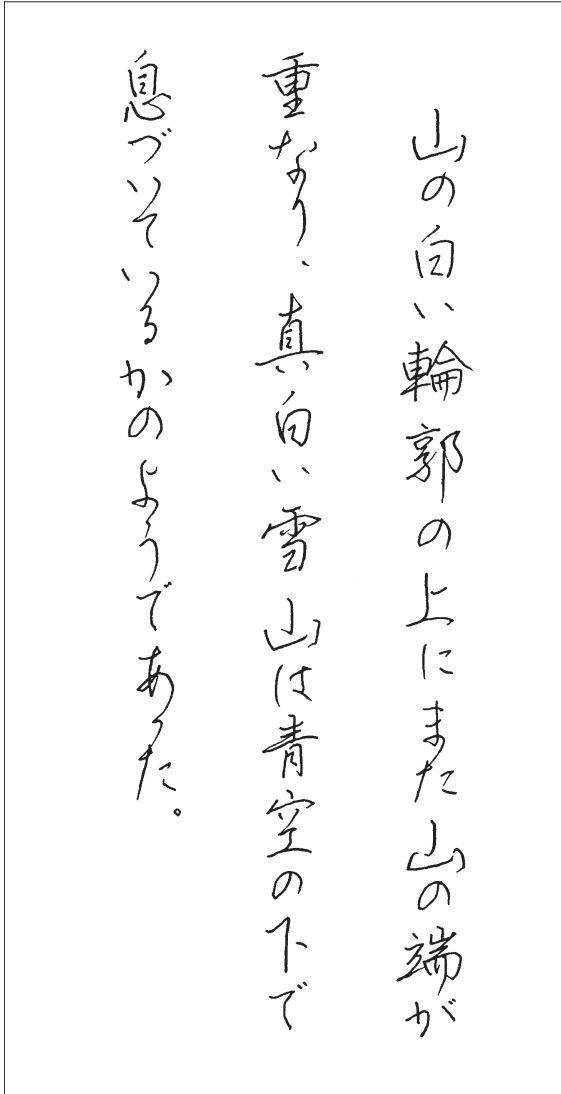 山の白い輪郭の上にまた山の端が
重なり、真白い雪山は青空の下で
息づいているかのようであった。